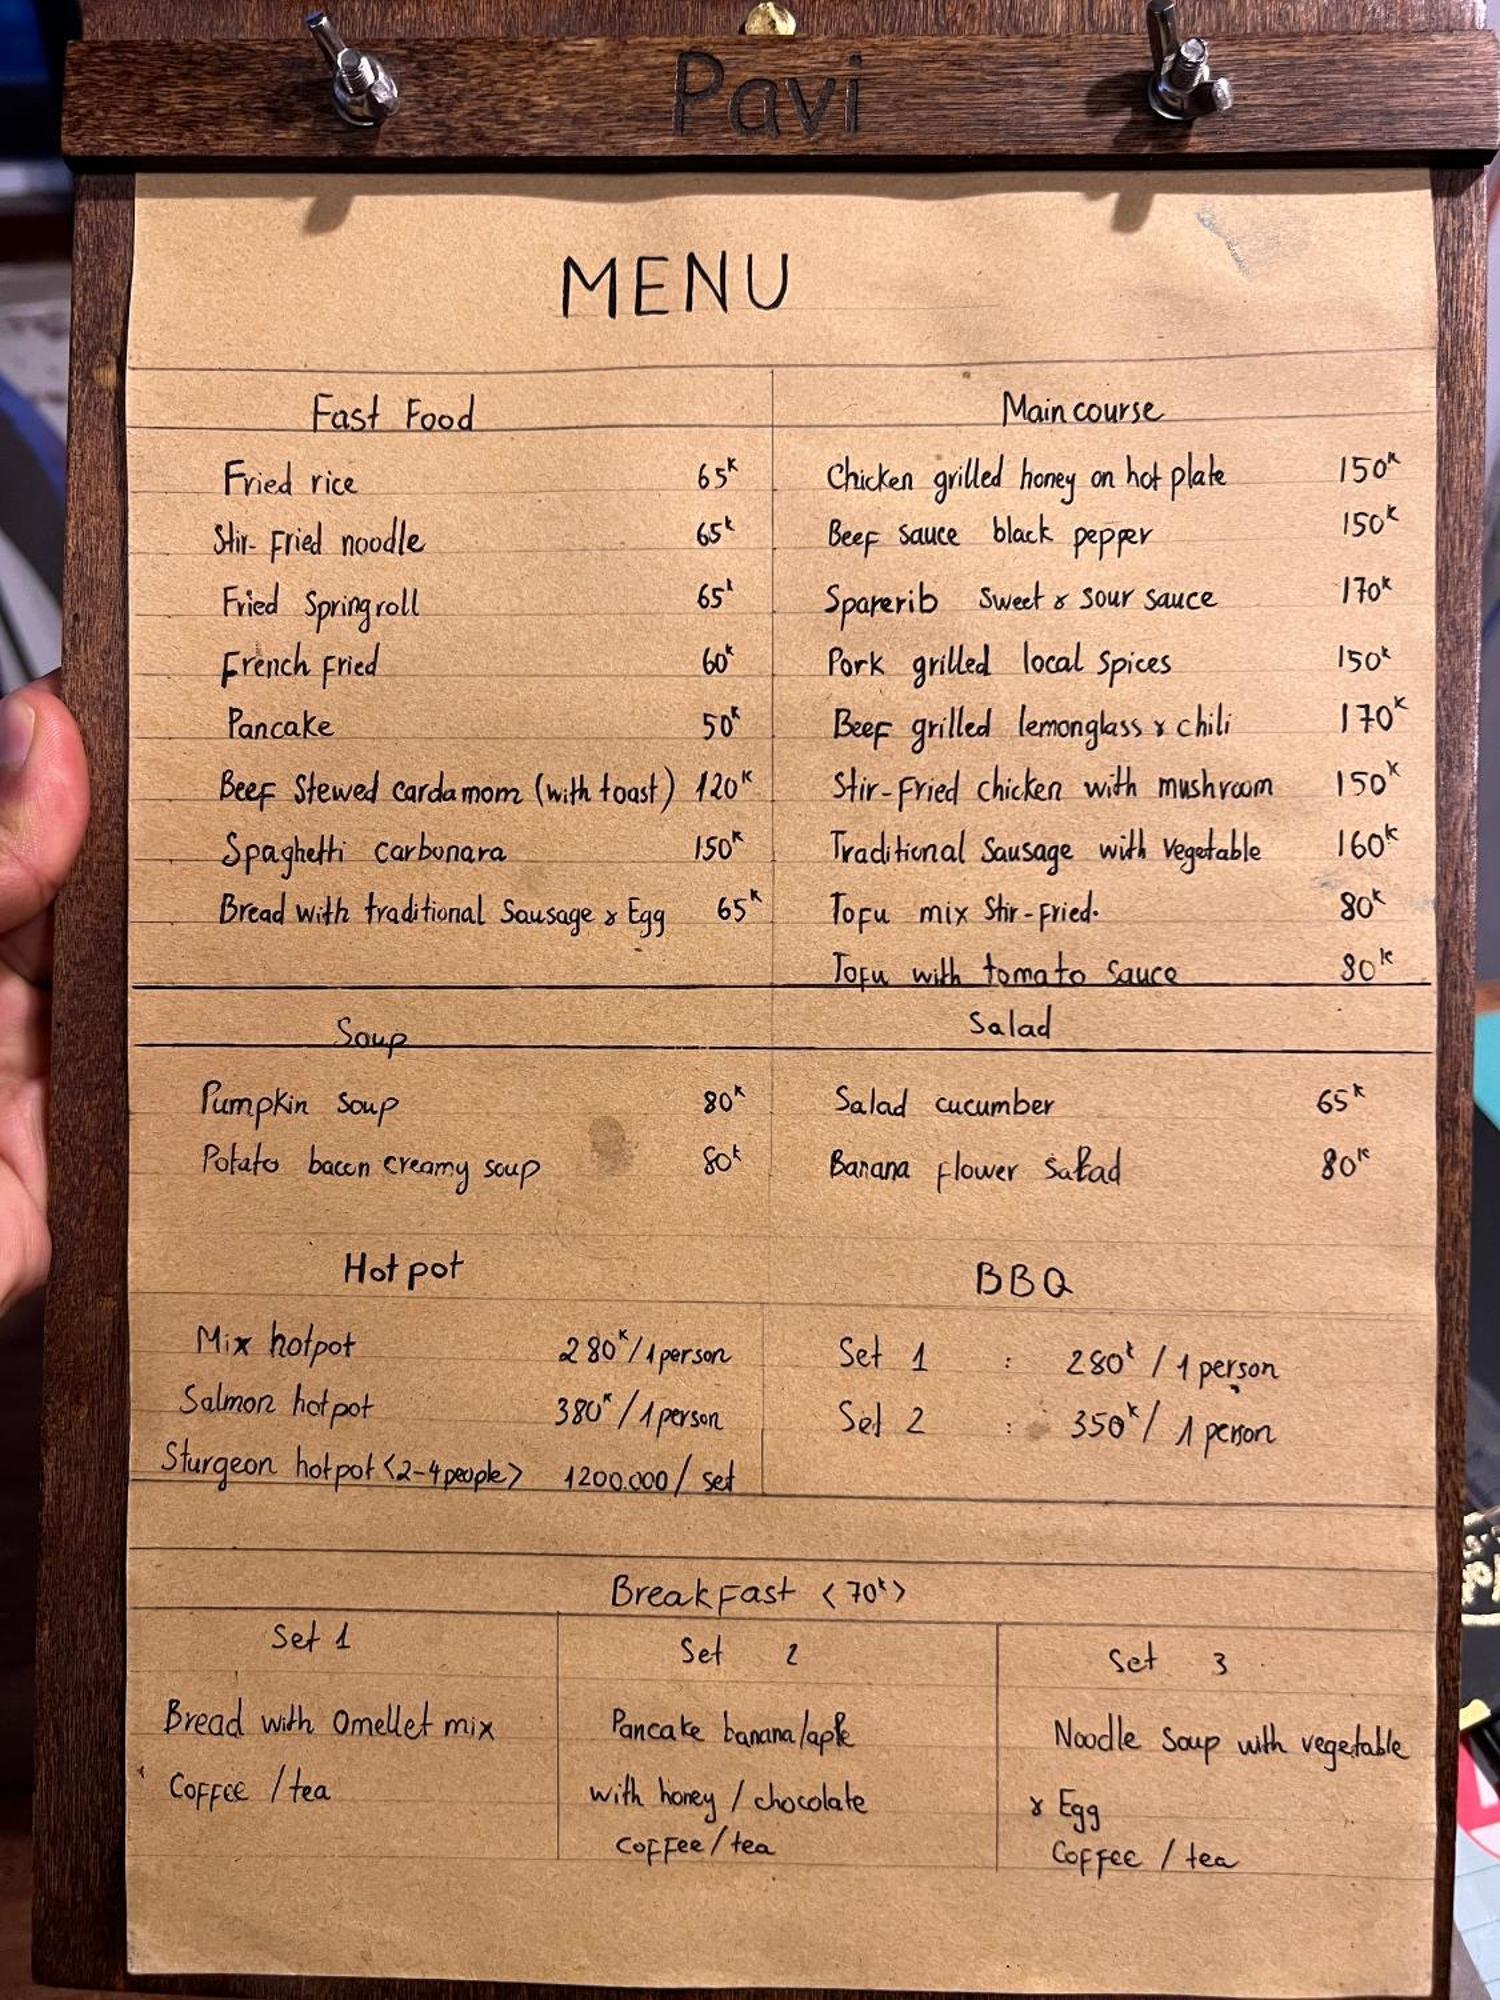 Pavi
MENU
Fast Food
Fried rice 65k
Stir-Fried noodle 65k
Fried Springroll 65k
French Fried 60k
Pancake 50k
Beef Stewed cardamom (with toast) 120k
Spaghetti carbonara 150k
Bread with traditional Sausage & Egg 65k
Main course
Chicken grilled honey on hot plate 150k
Beef sauce black pepper 150k
Sparerib Sweet & sour sauce 170k
Pork grilled local spices 150k
Beef grilled lemonglass & chili 170k
Stir-Fried chicken with mushroom 150k
Traditional Sausage with vegetable 160k
Tofu mix Stir-Fried. 80k
Tofu with tomato sauce 80k
Soup
Pumpkin soup 80k
Potato bacon creamy soup 80k
Salad
Salad cucumber 65k
Banana flower salad 80k
Hotpot
Mix hotpot 280k/1person
Salmon hotpot 380k/1person
Sturgeon hotpot <2-4people> 1200.000/ set
BBQ
Set 1 : 280k / 1 person
Set 2 : 350k / 1 person
Breakfast <70k>
Set 1
Bread with Omellet mix
Coffee / tea
Set 2
Pancake banana/aple
with honey / chocolate
Coffee/tea
Set 3
Noodle Soup with vegetable
& Egg
Coffee / tea